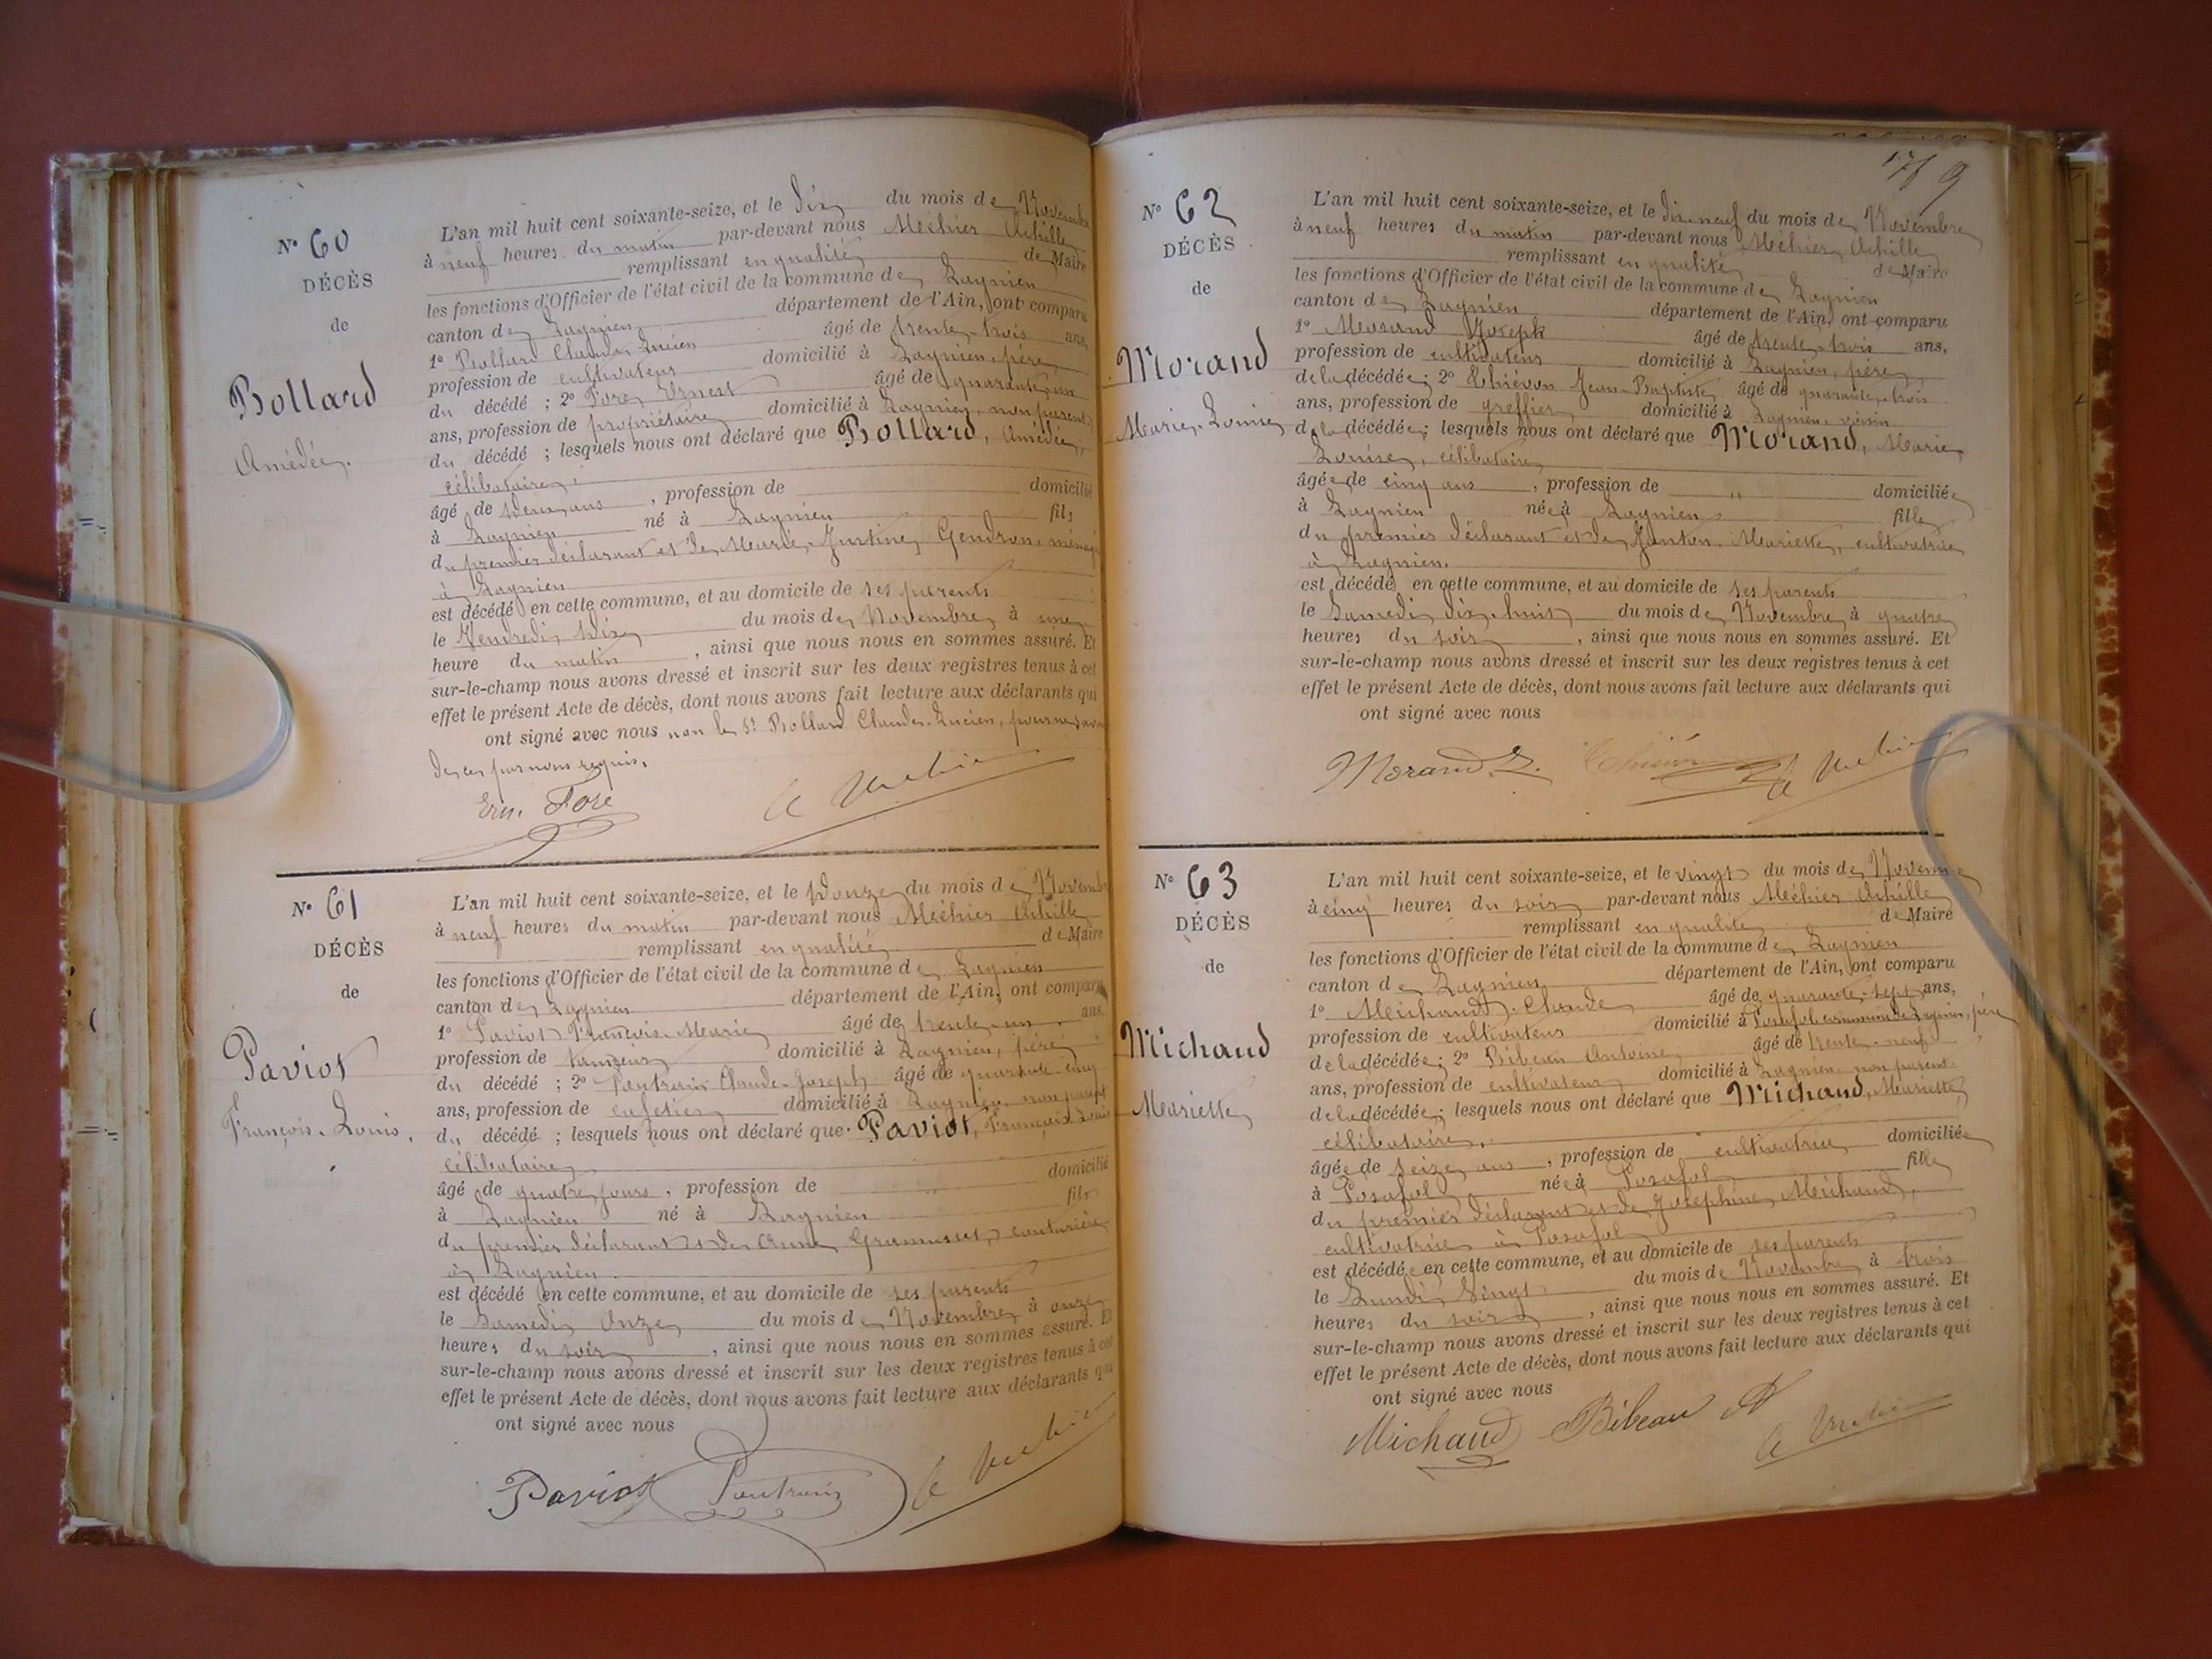 N° 60
DÉCÈS
de
Bollard
Amédée.
L'an mil huit cent soixante-seize, et le dix du mois de Novembre
à neuf heures du matin par-devant nous Méhier Achille
remplissant en qualité de Maire
les fonctions d'Officier de l'état civil de la commune de Lagnieu
canton de Lagnieu département de l'Ain, ont comparu
1° Bollard Claude Lucien âgé de trente-trois ans,
profession de cultivateur domicilié à Lagnieu, père
du décédé ; 2° Foré Ernest âgé de quarante-un
ans, profession de propriétaire domicilié à Lagnieu, non parent
du décédé ; lesquels nous ont déclaré que Bollard, Amédée,
célibataire,
âgé de deux ans, profession de domicilié
à Lagnieu né à Lagnieu fils
du premier déclarant et de Marie-Justine Gendron,
à Lagnieu
est décédé en cette commune, et au domicile de ses parents
le Vendredi dix du mois de Novembre à une
heure du matin, ainsi que nous nous en sommes assuré. Et
sur-le-champ nous avons dressé et inscrit sur les deux registres tenus à cet
effet le présent Acte de décès, dont nous avons fait lecture aux déclarants qui
ont signé avec nous non le Sr Bollard Claude-Lucien, pour ne
de ce par nous requis.
Ern. Foré
N° 61
DÉCÈS
de
Paviot
François-Louis,
L'an mil huit cent soixante-seize, et le douze du mois de Novembre
à neuf heures du matin par-devant nous Méhier Achille
remplissant en qualité de Maire
les fonctions d'Officier de l'état civil de la commune de Lagnieu
canton de Lagnieu département de l'Ain, ont comparu
1° Paviot François-Marie âgé de trente-un ans
profession de tanneur domicilié à Lagnieu, père
du décédé ; 2° Pautrain Claude-Joseph âgé de quarante-cinq
ans, profession de cafetier domicilié à Lagnieu, non parent
du décédé ; lesquels nous ont déclaré que Paviot, François-Louis
célibataire,
âgé de quatre jours, profession de domicilié
à Lagnieu né à Lagnieu fils
du premier déclarant et de Anne couturière
à Lagnieu
est décédé en cette commune, et au domicile de ses parents
le Samedi Onze du mois de Novembre à onze
heures du soir, ainsi que nous nous en sommes assuré. Et
sur-le-champ nous avons dressé et inscrit sur les deux registres tenus à cet
effet le présent Acte de décès, dont nous avons fait lecture aux déclarants qui
ont signé avec nous
Paviot Pautrain
N° 62
DÉCÈS
de
Morand
Marie-Louise
L'an mil huit cent soixante-seize, et le dix-neuf du mois de Novembre
à neuf heures du matin par-devant nous Méhier Achille
remplissant en qualité de Maire
les fonctions d'Officier de l'état civil de la commune de Lagnieu
canton de Lagnieu département de l'Ain, ont comparu
1° Morand Joseph âgé de trente-trois ans,
profession de cultivateur domicilié à Lagnieu, père
de la décédée; 2° Thiévon Jean-Baptiste âgé de quarante-trois
ans, profession de greffier domicilié à Lagnieu, voisin
de la décédée; lesquels nous ont déclaré que Morand, Marie
Louise, célibataire
âgée de cinq ans, profession de " domiciliée
à Lagnieu née à Lagnieu fille
du premier déclarant et de Janton Mariette, cultivatrice
à Lagnieu.
est décédé en cette commune, et au domicile de ses parents
le Samedi dix-huit du mois de Novembre à quatre
heures du soir, ainsi que nous nous en sommes assuré. Et
sur-le-champ nous avons dressé et inscrit sur les deux registres tenus à cet
effet le présent Acte de décès, dont nous avons fait lecture aux déclarants qui
ont signé avec nous
Morand
N° 63
DÉCÈS
de
Michaud
Mariette
L'an mil huit cent soixante-seize, et le vingt du mois de Novembre
à cinq heures du soir par-devant nous Méhier Achille
remplissant en qualité de Maire
les fonctions d'Officier de l'état civil de la commune de Lagnieu
canton de Lagnieu département de l'Ain, ont comparu
1° Michaud Claude âgé de quarante-sept ans,
profession de cultivateur domicilié à Posafol commune de Lagnieu, père
de la décédée; 2° Bibeau Antoine âgé de trente-neuf
ans, profession de cultivateur domicilié à Lagnieu non parent
de la décédée; lesquels nous ont déclaré que Michaud, Mariette,
célibataire,
âgée de seize ans, profession de cultivatrice domiciliée
à Posafol née à Posafol fille
du premier déclarant et de Joséphine Michaud,
cultivatrice à Posafol
est décédée en cette commune, et au domicile de ses parents
le Lundi Vingt du mois de Novembre à trois
heures du soir, ainsi que nous nous en sommes assuré. Et
sur-le-champ nous avons dressé et inscrit sur les deux registres tenus à cet
effet le présent Acte de décès, dont nous avons fait lecture aux déclarants qui
ont signé avec nous
Michaud Bibeau A